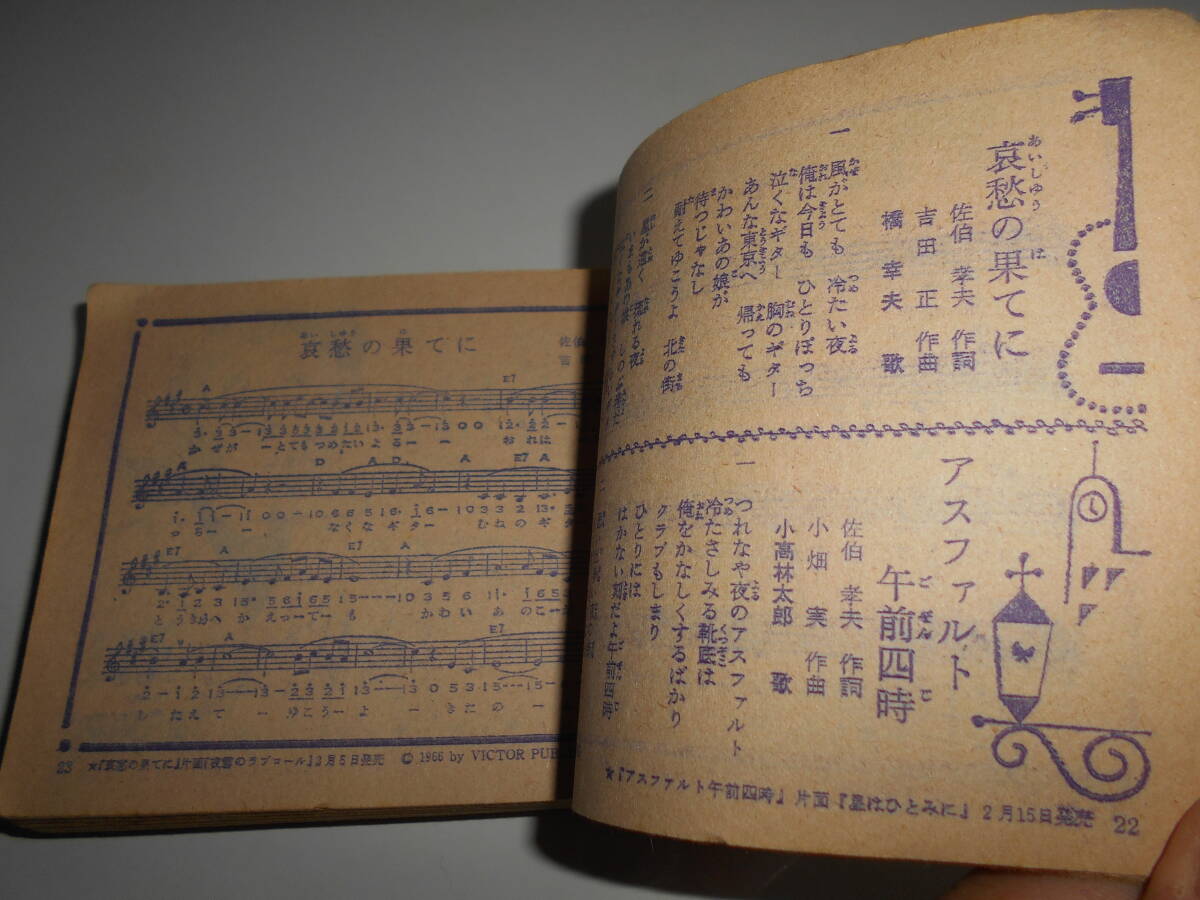 哀愁の果てに
佐伯孝夫 作詞
吉田正 作曲
橋幸夫 歌
一
風がとても 冷たい夜
俺は今日も ひとりぽっち
泣くなギター 胸のギター
あんな東京へ 帰っても
かわいあの娘が
待つじゃなし
耐えてゆこうよ 北の街
二
アスファルト
午前四時
佐伯孝夫 作詞
小畑実 作曲
小高林太郎 歌
一
つれなや夜のアスファルト
冷たさしみる靴底は
俺をかなしくするばかり
クラブもしまり
ひとりには
はかない刻だよ午前四時
★『アスファルト午前四時』片面『星はひとみに』2月15日発売
22
哀愁の果てに
佐伯
かぜが ーとてもつめたいよるー ー おれは
っちー ー なくなギター むねのギタ
とうきょうへ かえっーてーも ーかわい あのこー
したえて ー ゆこうー よ ー きたの ー
23
★『哀愁の果てに』片面『夜霧のラブコール』2月5日発売
© 1966 by VICTOR PUB